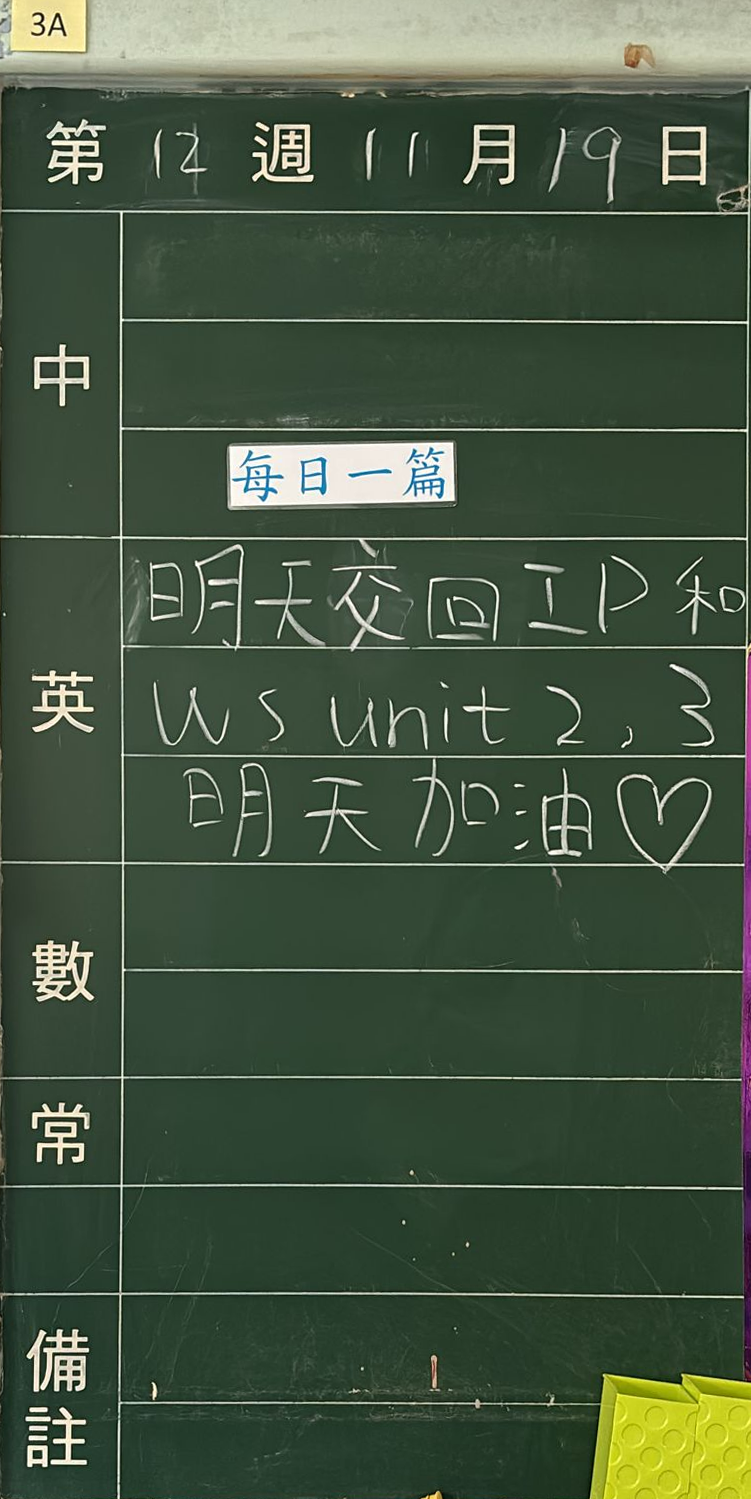 3A
第 12 週 11 月 19 日
中
每日一篇
英
明天交回 IP 和
WS unit 2, 3
明天加油♡
數
常
備
註